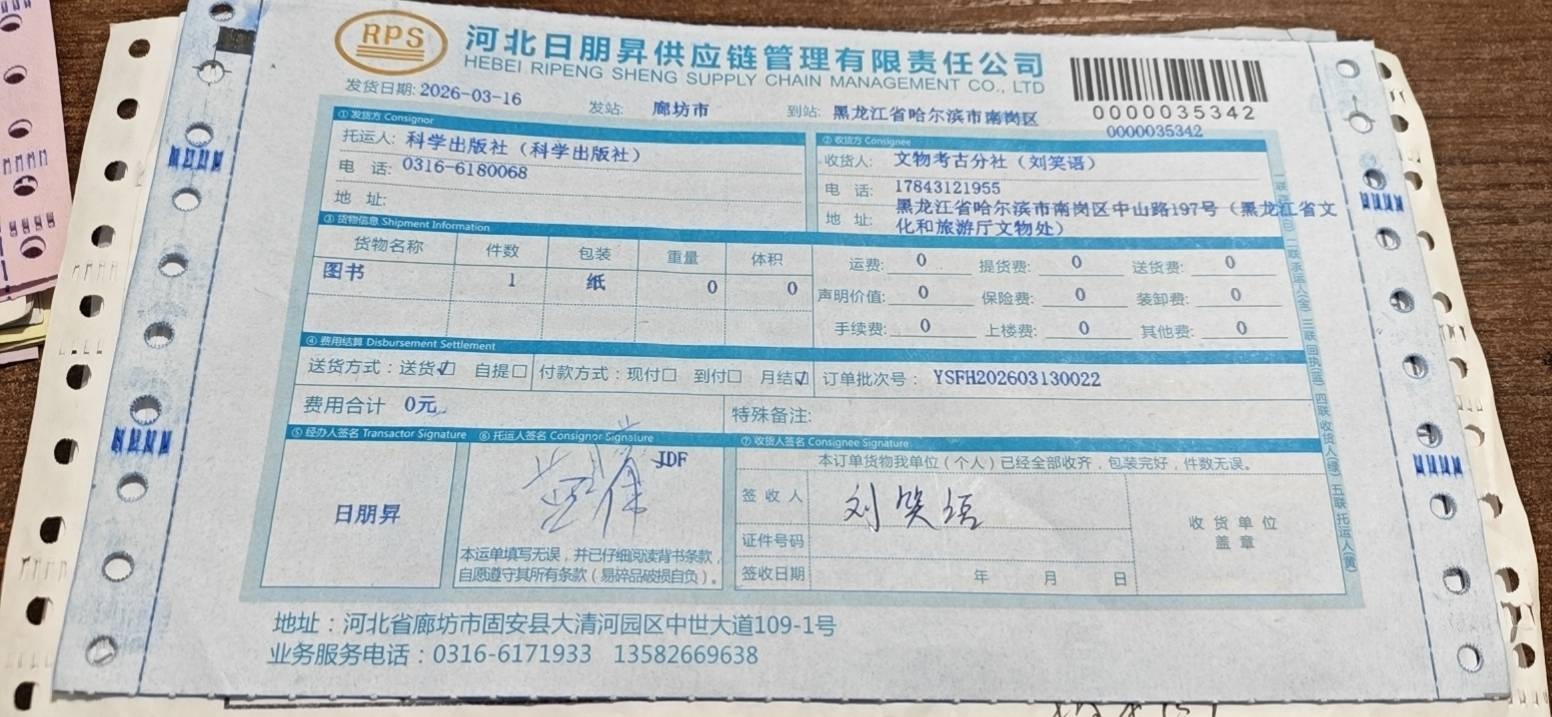 RPS
河北日朋昇供应链管理有限责任公司
HEBEI RIPENG SHENG SUPPLY CHAIN MANAGEMENT CO., LTD
0000035342
0000035342
发货日期: 2026-03-16 发站: 廊坊市 到站: 黑龙江省哈尔滨市南岗区
① 发货方 Consignor
托运人: 科学出版社（科学出版社）
电 话: 0316-6180068
地 址:
② 收货方 Consignee
收货人: 文物考古分社（刘笑语）
电 话: 17843121955
地 址: 黑龙江省哈尔滨市南岗区中山路197号（黑龙江省文
化和旅游厅文物处）
③ 货物信息 Shipment Information
货物名称 件数 包装 重量 体积
图书 1 纸 0 0
运费: 0 提货费: 0 送货费: 0
声明价值: 0 保险费: 0 装卸费: 0
手续费: 0 上楼费: 0 其他费: 0
④ 费用结算 Disbursement Settlement
送货方式：送货☑ 自提☐ 付款方式：现付☐ 到付☐ 月结☑ 订单批次号： YSFH202603130022
费用合计 0元 特殊备注:
⑤ 经办人签名 Transactor Signature
日朋昇
⑥ 托运人签名 Consignor Signature
JDF
本运单填写无误，并已仔细阅读背书条款，
自愿遵守其所有条款（易碎品破损自负）。
⑦ 收货人签名 Consignee Signature
本订单货物我单位（个人）已经全部收齐，包装完好，件数无误。
签 收 人 刘笑语
证件号码
签收日期 年 月 日
收 货 单 位
盖 章
地址：河北省廊坊市固安县大清河园区中世大道109-1号
业务服务电话：0316-6171933 13582669638